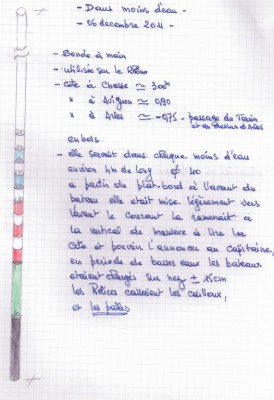 - Dans moins d'eau -
- 06 decembre 2011 -
- Sonde à main
- utilisée sur le Rhône
- côte à Chasse ≃ 3.00m
" à Avignon ≃ 0,90
" à Arles ≃ -0,75 - passage de Terrin
et au dessus d'Arles
en bois.
- elle servait dans chaque moins d'eau
environ 4m de long ϕ 40
a partir du plat-bord à l'avant du
bateau elle etait mise légèrement vers
l'avant le courant la ramenait a
la vertical de manière à lire la
côte et pouvoir l'annoncer au capitaine,
en periode de basses eaux les bateaux
etaient chargés sur nez ± 15cm
les hélices cassaient les cailloux,
et les pâles